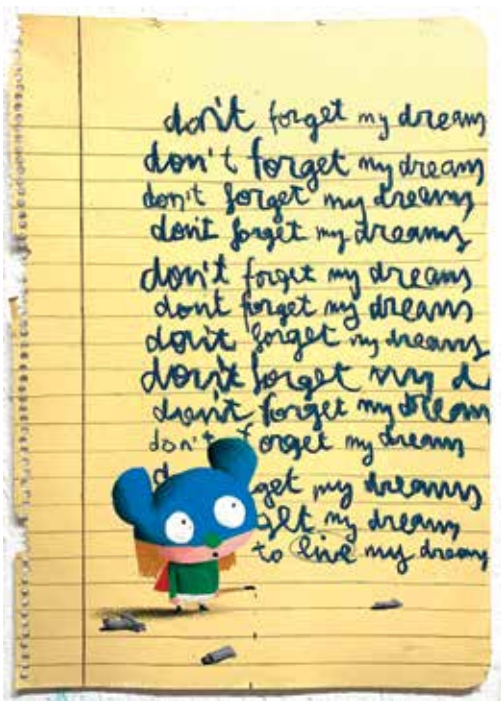 don't forget my dreams
don't forget my dreams
don't forget my dreams
don't forget my dreams
don't forget my dreams
dont forget my dreams
don't forget my dreams
don't forget my d
don't forget my dream
don't forget my dreams
get my dreams
get my dreams
to live my dreams